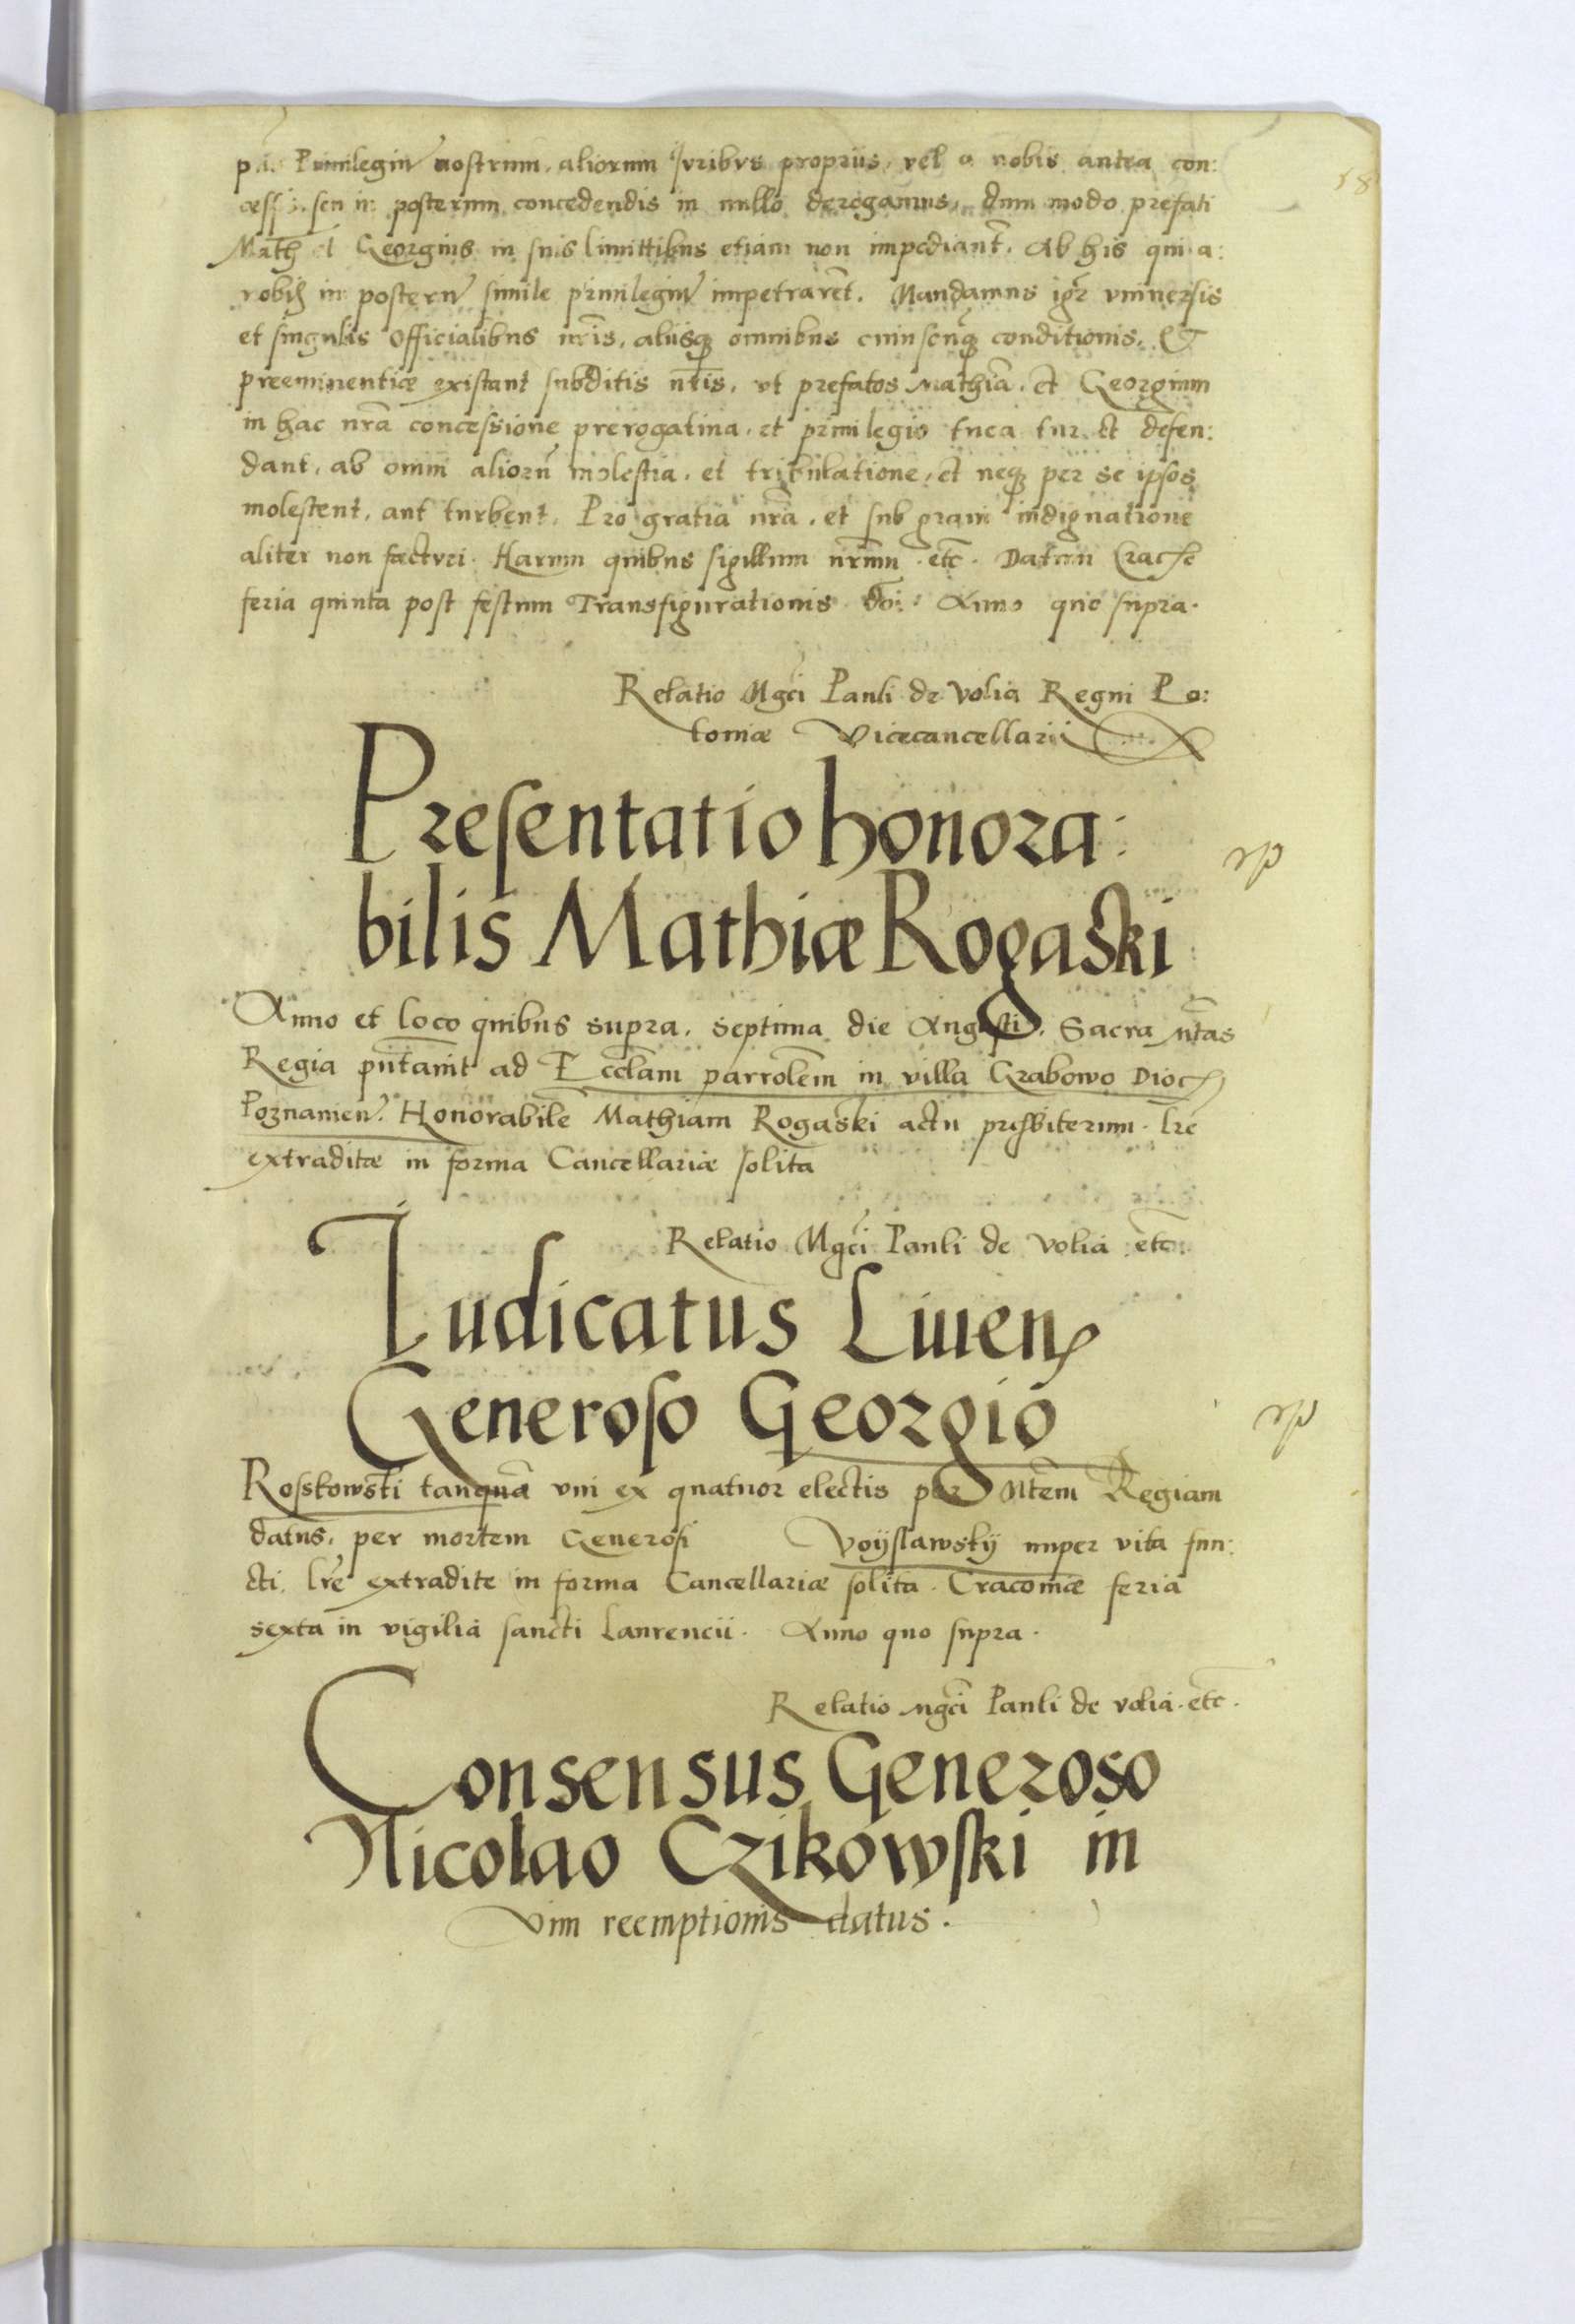 58
Privilegiũ nostrum, aliorum Juribus propriis, vel a nobis antea con:
cessis, seu in posterum concedendis in nullo derogamus, dum modo prefati
Math et Georgius in suis limittibus etiam non impediant͂. Ab his qui a:
nobis in posterũ simile privilegiũ impetrarẽt. Mandamus igr̃ universis
et singulis Officialibus nr̃is, aliisq̃ omnibus cuiuscunq̃ conditionis, &
preeminentiæ existant subditis nr̃is, ut prefatos Mathiã, et Georgium
in hac nr̃a concessione prerogativa, et privilegio tueatur et defen:
dant, ab omni aliorũ molestia, et tribulatione, et neq̃ per se ipsos
molestent, aut turbent, Pro gratia nr̃a, et sub gravi indignatione
aliter non facturi. Harum quibus sigillum nr̃um etc̃. Datum Crac͂
feria quinta post festum Transfigurationis dñi. Anno quo supra.
Relatio Mgci Pauli de Volia Regni Po:
loniæ Vicecancellarii
Presentatio honora:
bilis Mathiæ Rogaski
Anno et loco quibus supra, septima die Augusti, Sacra M̃tas
Regia pñtavit ad Ecclãm parrolẽm in villa Grabowo Dioc͂
Poznanien͂. Honorabilẽ Mathiam Rogaski actu presbiterum. Lrẽ
extraditæ in forma Cancellariæ solita
Relatio Mgci Pauli de Volia etc.
Iudicatus Liuen͂
Generoso Georgio
Rosskowski tanquã uni ex quatuor electis per M̃tem Regiam
datus, per mortem Generosi Voijslawskij nuper vita fun:
cti. Lrẽ extradite in forma Cancellariæ solita. Cracoviæ feria
sexta in vigilia sancti Laurencii. Anno quo supra.
Relatio Mgci Pauli de Volia. etc.
Consensus Generoso
Nicolao Czikowski in
vim reemptionis datus.